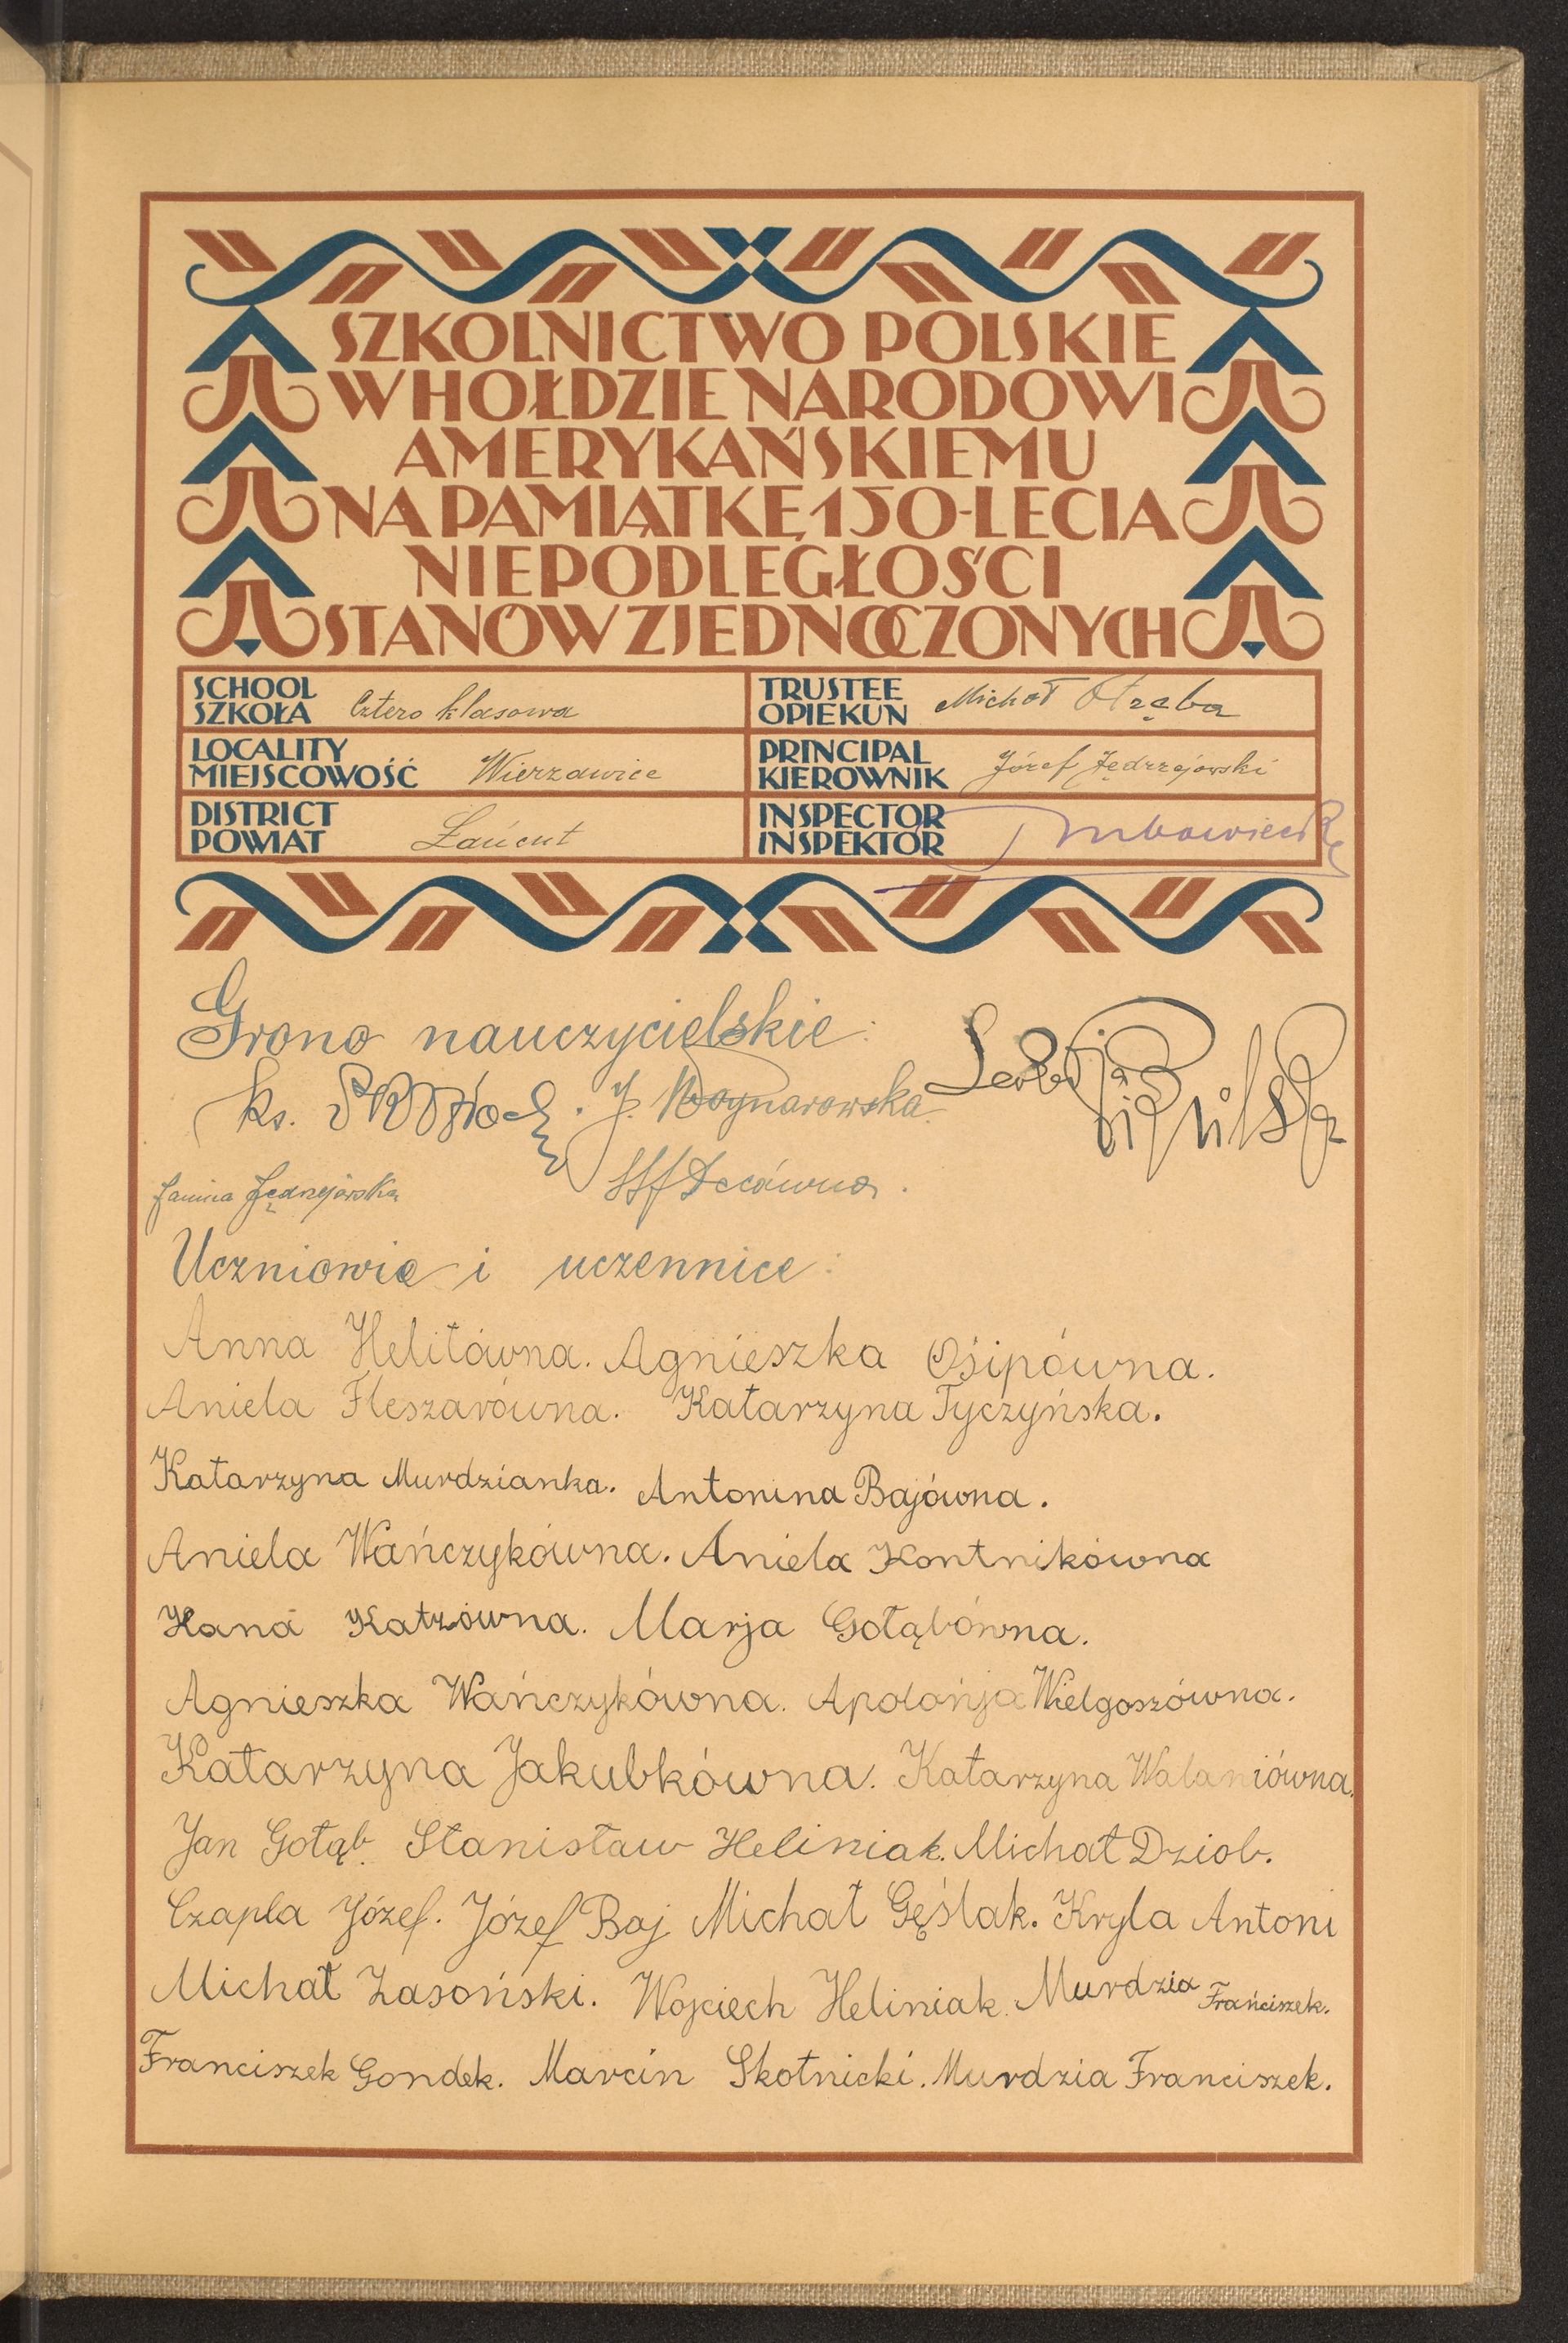 SZKOLNICTWO POLSKIE
W HOŁDZIE NARODOWI
AMERYKAŃSKIEMU
NA PAMIĄTKĘ 150-LECIA
NIEPODLEGŁOŚCI
STANÓW ZJEDNOCZONYCH
SCHOOL
SZKOŁA Cztero klasowa
TRUSTEE
OPIEKUN Michał Otręba
LOCALITY
MIEJSCOWOŚĆ Wierzawice
PRINCIPAL
KIEROWNIK Józef Jędrzejowski
DISTRICT
POWIAT Łańcut
INSPECTOR
INSPEKTOR
Grono nauczycielskie:
ks. J. Wognarowska
Janina Jędrzejowska
Uczniowie i uczennice:
Anna Helitówna. Agnieszka Osipówna.
Aniela Fleszarówna. Katarzyna Tyczyńska.
Katarzyna Murdzianka. Antonina Bajówna.
Aniela Wańczykówna. Aniela Kontnikówna
Hana Katzówna. Marja Gołąbówna.
Agnieszka Wańczykówna. Apolońja Wielgoszówna.
Katarzyna Jakubkówna. Katarzyna Walaniówna.
Jan Gołąb. Stanisław Heliniak. Michał Dziob.
Czapla Józef. Józef Baj Michał Gęślak. Kryla Antoni
Michał Zasoński. Wojciech Heliniak. Murdzia Frańciszek.
Franciszek Gondek. Marcin Skotnicki. Murdzia Franciszek.